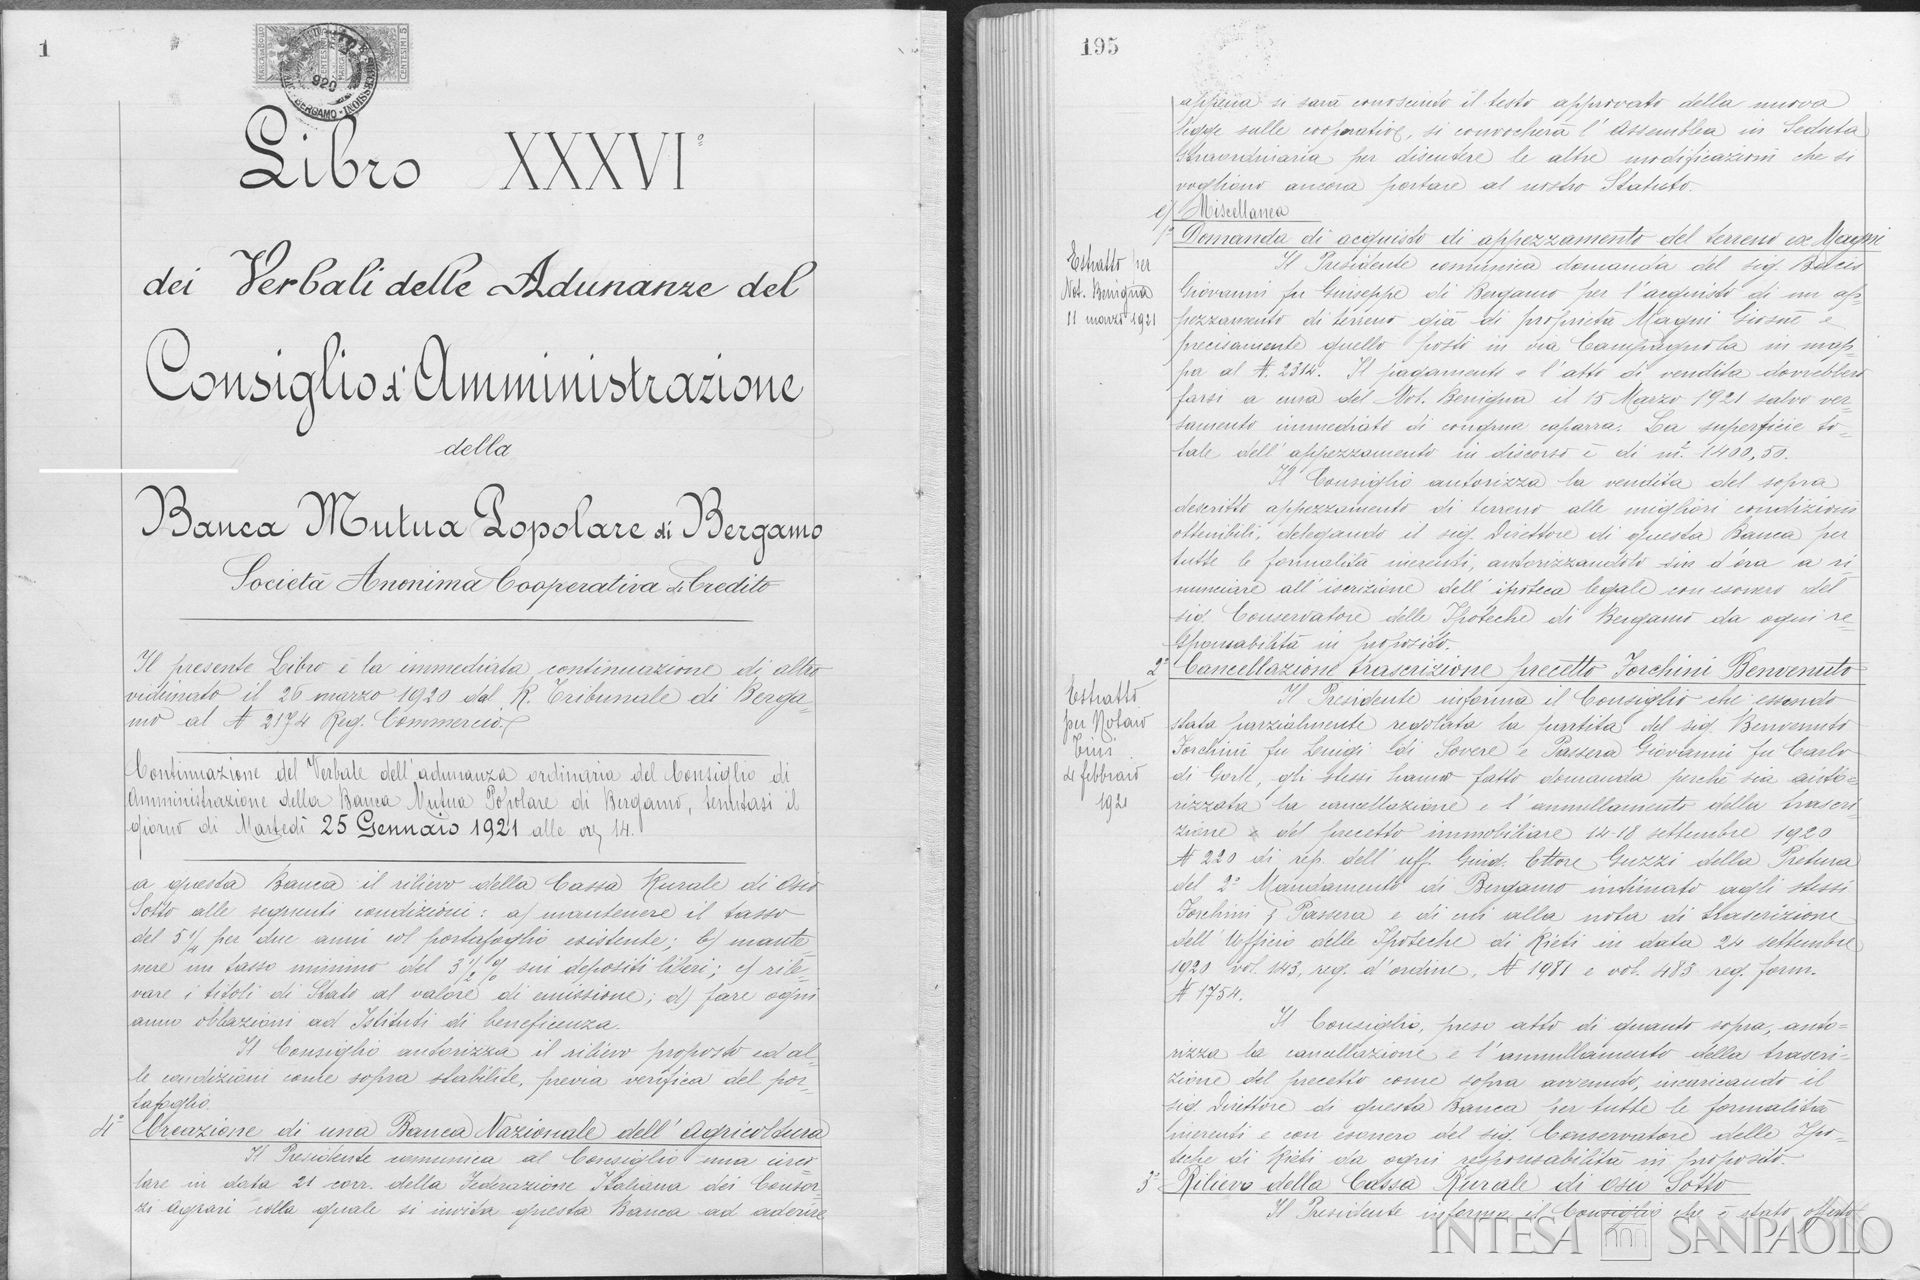 1
MARCA DA BOLLO
CENTESIMI 5
920
BERGAMO
SUCCESSIONI
Libro XXXVI°
dei Verbali delle Adunanze del
Consiglio d'Amministrazione
della
Banca Mutua Popolare di Bergamo
Società Anonima Cooperativa di Credito
Il presente Libro è la immediata continuazione di altro
vidimato il 26 marzo 1920 dal R. Tribunale di Berga-
mo al N 2174 Reg. Commercio.
Continuazione del Verbale dell'adunanza ordinaria del Consiglio di
Amministrazione della Banca Mutua Popolare di Bergamo, tenutasi il
giorno di Martedì 25 Gennaio 1921 alle ore 14.
a questa Banca il rilievo della Cassa Rurale di Osio
Sotto alle seguenti condizioni: a) mantenere il tasso
del 5 1/4 per due anni col portafoglio esistente; b) mante
nere un tasso minimo del 3 1/2 % sui depositi liberi; c) rile-
vare i titoli di Stato al valore di emissione; d) fare ogni
anno oblazioni ad Istituti di beneficenza.
Il Consiglio autorizza il rilievo proposto ed al-
le condizioni come sopra stabilite, previa verifica del por-
tafoglio
4° Creazione di una Banca Nazionale dell'Agricoltura
Il Presidente comunica al Consiglio una circo-
lare in data 21 corr. della Federazione Italiana dei Consor-
zi Agrari colla quale si invita questa Banca ad aderire
195
appena si sarà conosciuto il testo approvato della nuova
legge sulle cooperative, si convocherà l'Assemblea in Seduta
Straordinaria per discutere le altre modificazioni che si
vogliono ancora portare al nostro Statuto.
e) Miscellanea
1° Domanda di acquisto di appezzamento del terreno ex Magni
Estratto per
Not. Benigna
11 marzo 1921
Il Presidente comunica domanda del sig.
Giovanni fu Giuseppe di Bergamo per l'acquisto di un ap-
pezzamento di terreno già di proprietà Magni Giosuè e
precisamente quello posto in via Campagnola in map-
pa al N. 2314. Il pagamento e l'atto di vendita dovrebbero
farsi a cura del Not. Benigna il 15 Marzo 1921 salvo ver-
samento immediato di congrua caparra. La superficie to-
tale dell'appezzamento in discorso è di m². 1400,50.
Il Consiglio autorizza la vendita del sopra
descritto appezzamento di terreno alle migliori condizioni
ottenibili, delegando il sig. Direttore di questa Banca per
tutte le formalità inerenti, autorizzandolo sin d'ora a ri-
nunciare all'iscrizione dell'ipoteca legale con esonero del
sig. Conservatore delle Ipoteche di Bergamo da ogni re-
sponsabilità in proposito.
2° Cancellazione trascrizione precetto Forchini Benvenuto
Estratto
per Notaio
4 febbraio
1921
Il Presidente informa il Consiglio che essendo
stata parzialmente regolata la partita del sig. Benvenuto
Forchini fu Luigi di Sovere e Passera Giovanni fu Carlo
di Gorle, gli stessi hanno fatto domanda perchè sia auto-
rizzata la cancellazione e l'annullamento della trascri
zione del precetto immobiliare 14-18 settembre 1920
N 220 di rep. dell'uff. Giud. Ettore Guzzi della Pretura
del 2° Mandamento di Bergamo intimato agli stessi
Forchini e Passera e di cui alla nota di trascrizione
dell'Ufficio delle Ipoteche di Rieti in data 24 settembre
1920 vol. 143, reg. d'ordine, N 1981 e vol. 483 reg. form.
N 1754.
Il Consiglio, preso atto di quanto sopra, auto-
rizza la cancellazione e l'annullamento della trascri-
zione del precetto come sopra avvenuto, incaricando il
sig. Direttore di questa Banca per tutte le formalità
inerenti e con esonero del sig. Conservatore delle Ipo-
teche di Rieti da ogni responsabilità in proposito.
3° Rilievo della Cassa Rurale di Osio Sotto
Il Presidente informa il Consiglio che è stato offerto
INTESA SANPAOLO